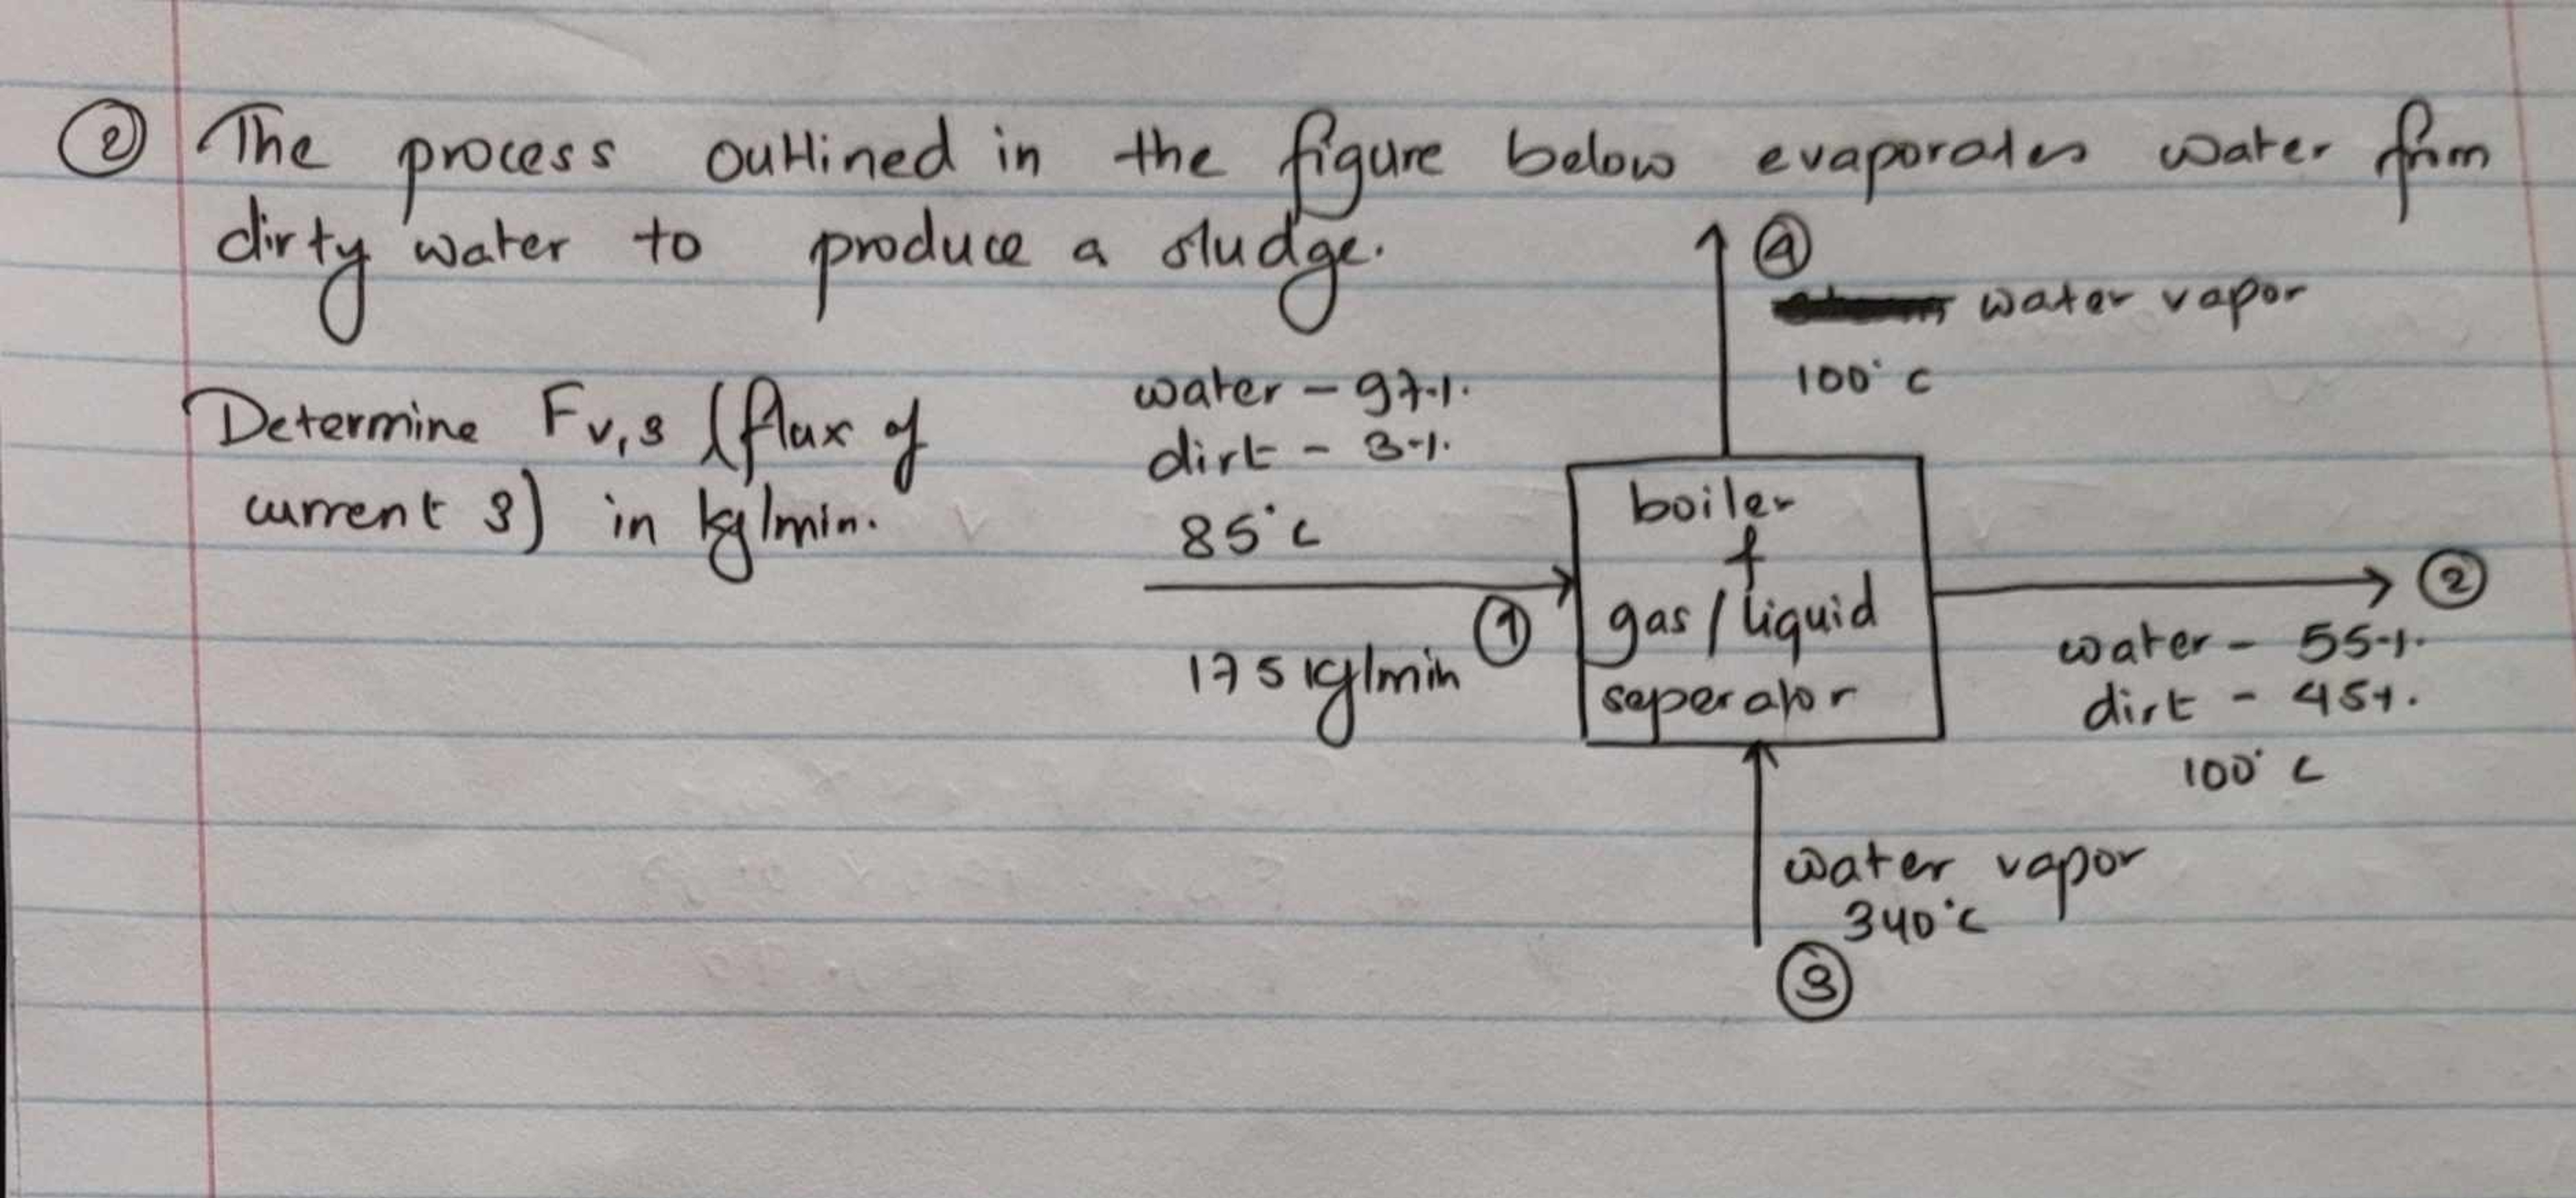 ② The process outlined in the figure below evaporates water from
dirty water to produce a sludge.
④
water vapor
100°C
Determine Fv,3 (flux of
current 3) in kg/min.
water - 97%.
dirt - 3%.
85°C
①
175 kg/min
boiler
+
gas/liquid
seperator
②
water - 55%.
dirt - 45%.
100°C
water vapor
340°C
③